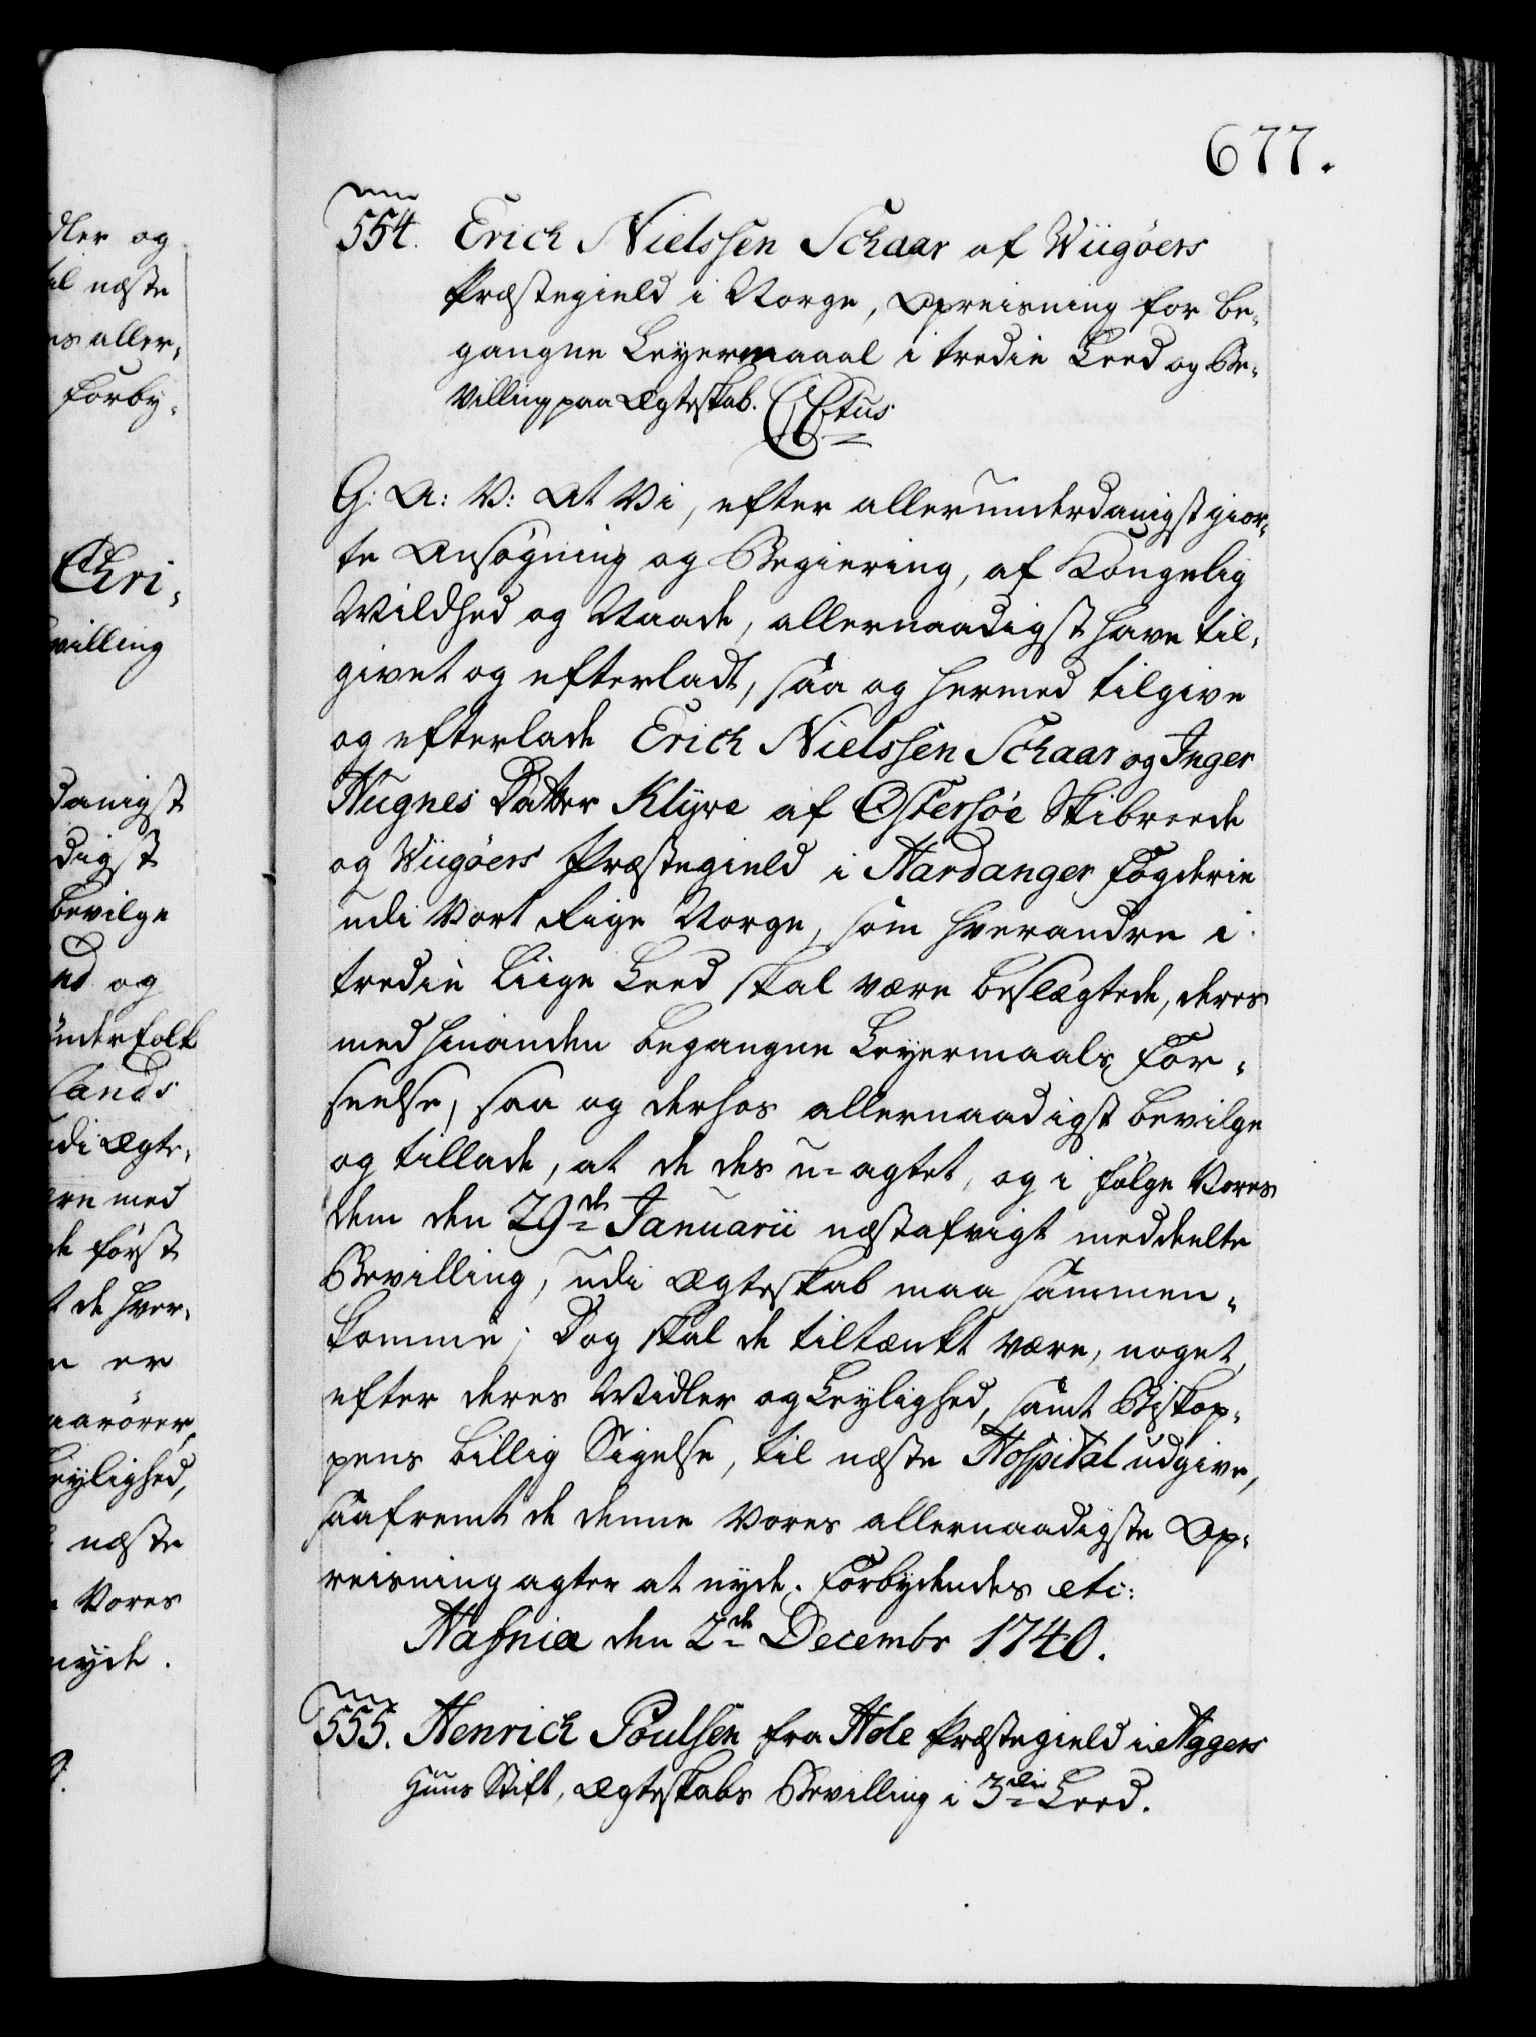 677.
dler og
til næste
es aller,
forby,
Chri,
villing
danigst
digst
bevilge
nd og
ünderfolk
lands
udi Ægte,
ern med
de först
t de hver,
n er
aarörer,
eylighed,
næste
Vores
nyde.
554. Erich Nielssen Schaar af Wiigöers
Præstegield i Norge, Opreisning for be,
gangne Leyermaaal i tredie Leed og Be,
villing paa Ægteskab. CC6tus
G: A: V: At Vi, efter allerunderdanigst gior,
te Ansögning og Begiering, af Kongelig
Mildhed og Naade, allernaadigst have til,
givet og efterladt, saa og hermed tilgive
og efterlade Erich Nielssen Schaar og Inger
Hugnes Datter Klyve af Östersöe Skibreede
og Wiigöers Præstegield i Hardanger Fogderie
udi Vort Rige Norge, som hverandre i
tredie Liige Leed skal være beslægtede, deres
med hinanden begangne Leyermaals For,
seelse, saa og derhos allernaadigst bevilge
og tillade, at de des u-agtet, og i fölge Vores
dem den 29de Januarii næstafvigt meddeelte
Bevilling, udi Ægteskab maa sammen,
komme; Dog skal de tiltænkt være, noget,
efter deres Midler og Leylighed, samt Biskop,
pens billig Sigelse, til næste Hospital udgive,
saafremt de denne Vores allernaadigste Op,
reisning agter at nyde. Forbydendes etc:
Hafnia den 2de Decembr 1740.
555. Henrich Poulsen fra Hole Præstegield i Aggers
Huus Stift, Ægteskabs Bevilling i 3die Leed.